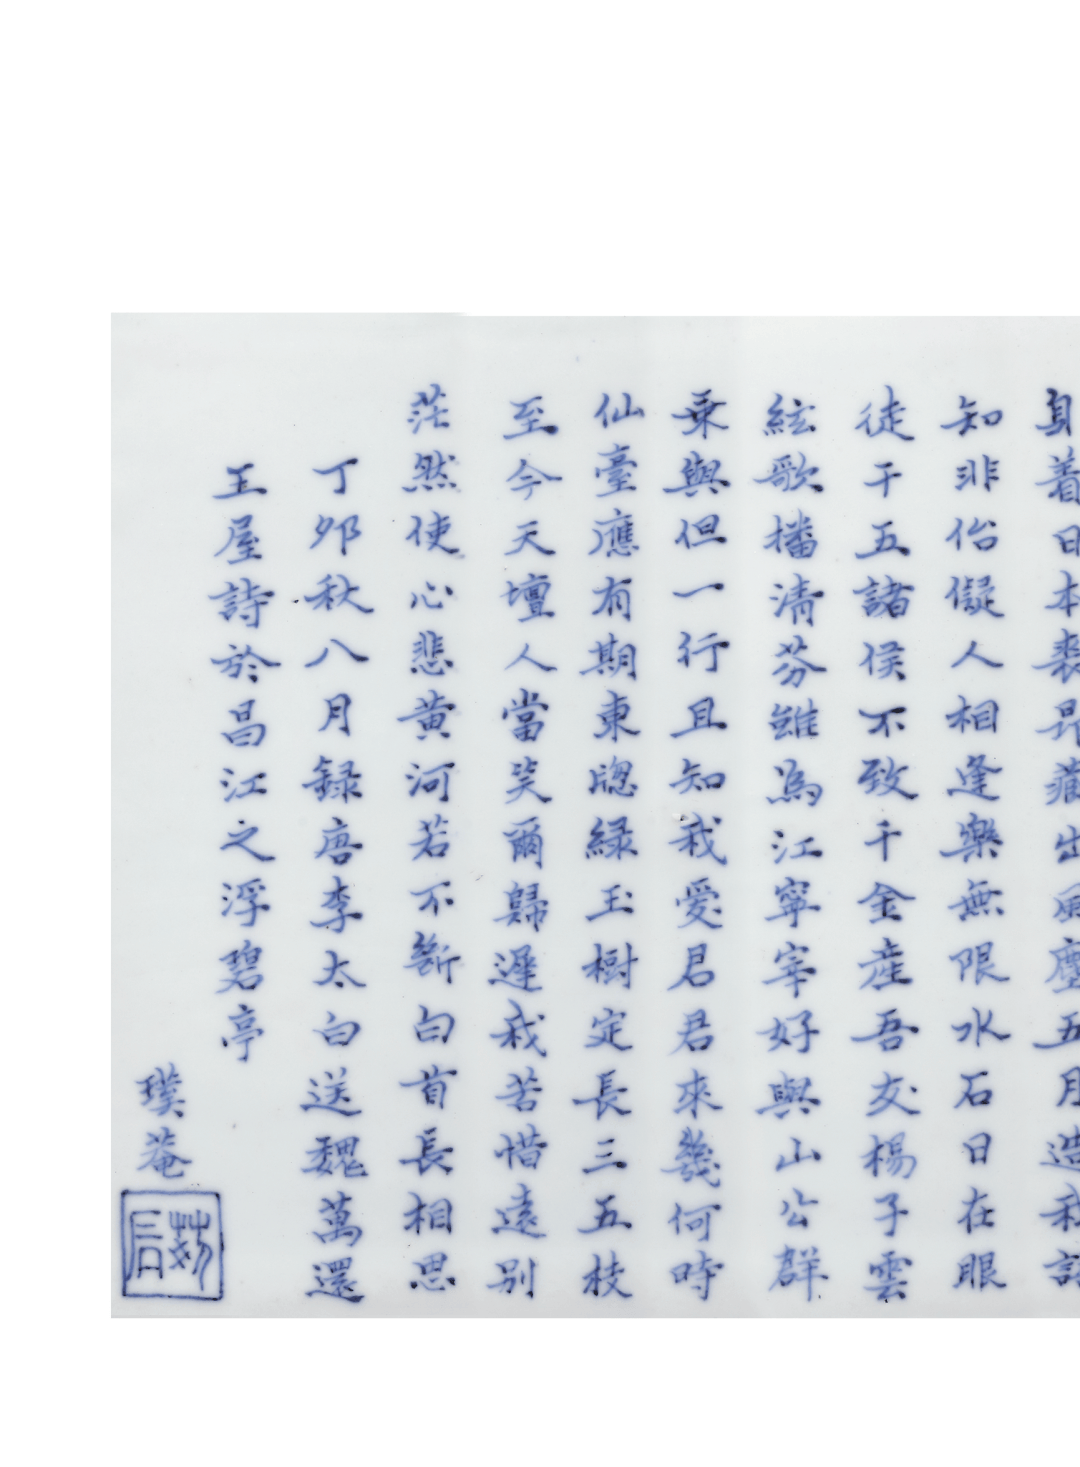 身着日本裘昂藏出風塵五月造我語
知非佁儗人相逢樂無限水石日在眼
徒干五諸侯不致千金産吾友楊子雲
絃歌播清芬雖為江寧宰好與山公群
乗興但一行且知我愛君君來幾何時
仙臺應有期東牕緑玉樹定長三五枝
至今天壇人當笑爾歸遲我苦惜遠別
茫然使心悲黄河若不斷白首長相思
丁夘秋八月録唐李太白送魏萬還
王屋詩於昌江之浮碧亭
璞菴